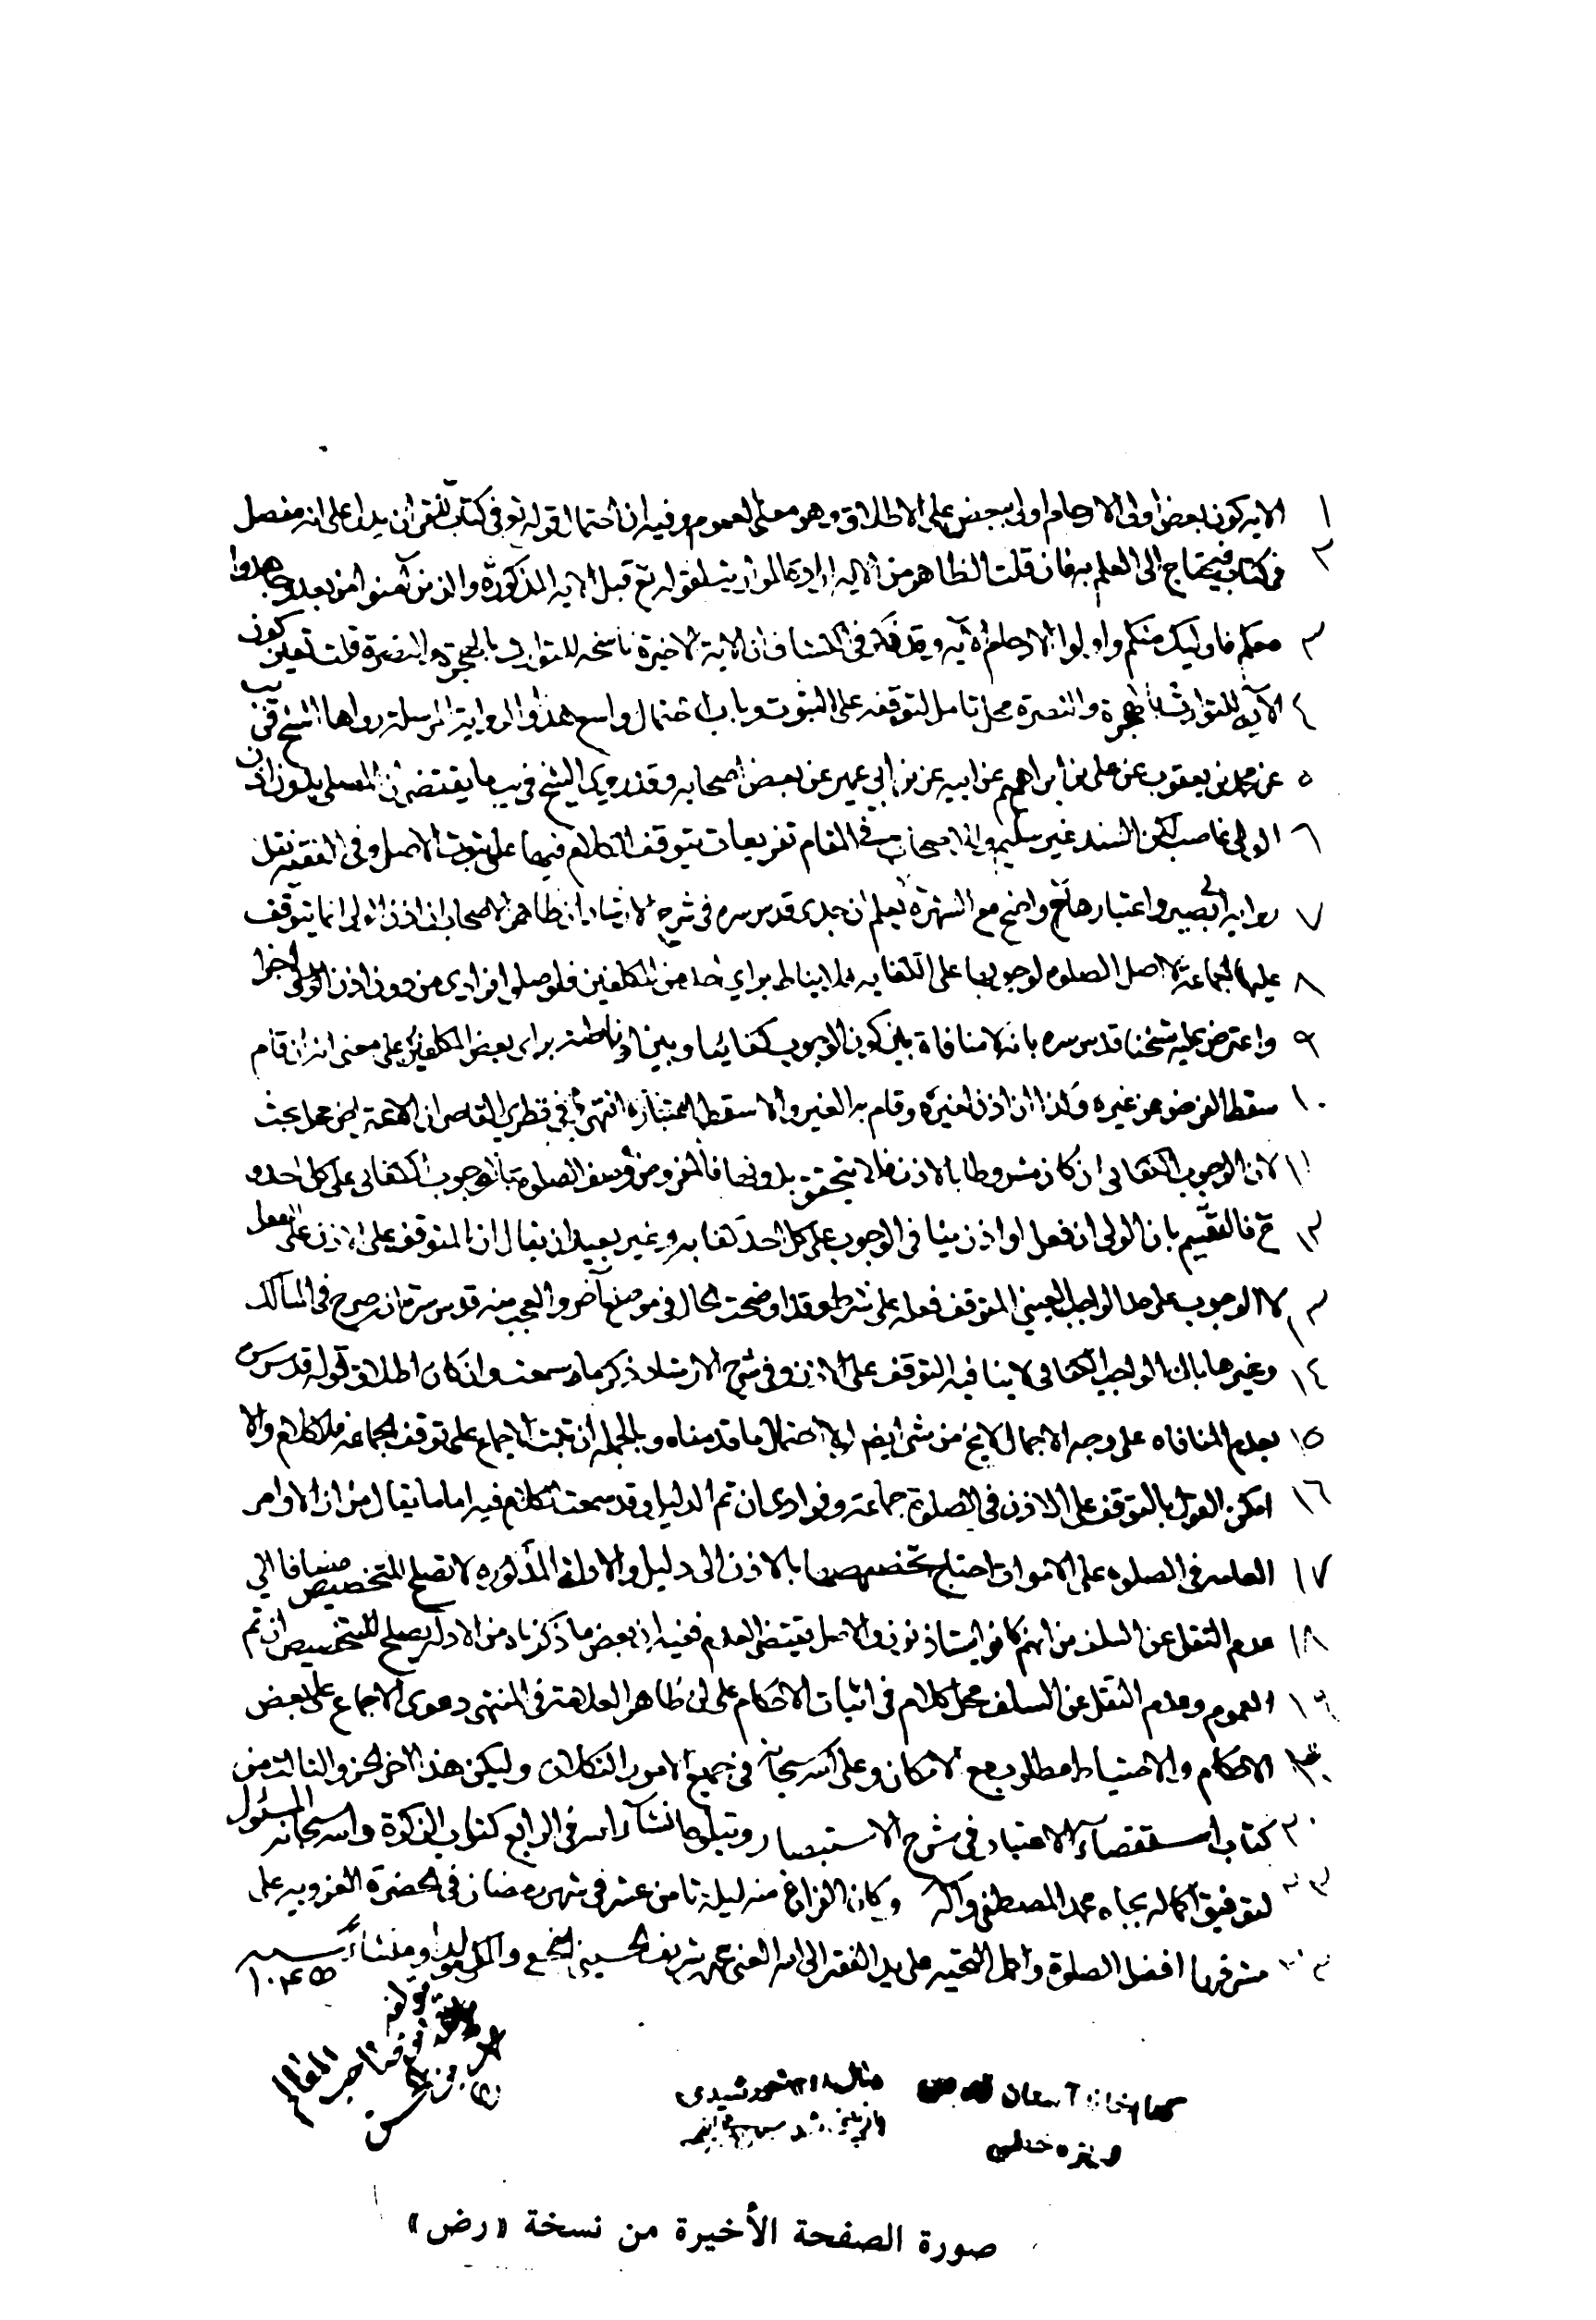 ١ الايه كون بعض اولى الارحام اولى ببعض على الاطلاق وهو معنى العموم وفيه ان احتمال قوله تع في كتاب الله تعالى يدل على انه مفصل
٢ في كتابه فيحتاج الى العلم به فان قلت الظاهر من الايه ارادة الموارثه لقوله تع قبل الايه المذكورة والذين آمنوا من بعد وجاهدوا
٣ معكم فاوليك منكم واولوا الارحام الآيه وقد ذكر في الكشاف ان الاية الاخيرة ناسخه للتوارث بالهجرة والنصرة قلت كون
٤ الآيه للتوارث بالهجرة والنصرة محل تامل لتوقفه على الثبوت وباب الاحتمال واسع هذا والرواية المرسلة رواها الشيخ في يب
٥ عن محمد بن يعقوب عن على بن ابراهيم عن ابيه عن ابن ابي عمير عن بعض اصحابه وقد روى الشيخ في يب ما يقتضى ان المصلى بدون اذن
٦ الولى غاصب لكن السند غير سليم وللاصحاب في المقام تفريعات يتوقف الكلام فيها على ثبوت الاصل وفي الفقيه نقل
٧ رواية ابي بصير واعتبارها واضح مع الشهرة ثم اعلم ان جدى قدس سره في شرح الارشاد ان ظاهر الاصحاب ان اذن الولى انما يتوقف
٨ عليها الجماعة لا اصل الصلوه لوجوبها على الكفايه فلا يناط براي احد من المكلفين فلو صلوا فرادى من دون اذن الولى اجزا
٩ واعترض عليه شيخنا قدس سره بانه لا منافاة بين كون الوجوب كفائيا وبين اناطته براى بعض المكلفين على معنى انه ان قام
١٠ سقط الفرض عن غيره وكذا ان اذن لغيره وقام به الغير والا سقط اعتباره انتهى وفي نظري القاصر ان الاعتراض محل بحث
١١ لان الوجوب الكفائى ان كان مشروطا بالاذن فلا يتحقق بدونها فالمفروض وصف الصلوة بالوجوب الكفائى على كل احد و
١٢ ح فالتقييد بان الولى ان فعل او اذن ينافى الوجوب على كل احد كفايه وغير بعيد ان يقال ان المتوقف على الاذن الفعل
١٣ لا الوجوب على حد الواجب العينى المتوقف فعله على شرط وقد اوضحت الحال في موضع آخر والعجب منه قدس سره انه صرح في المسالك
١٤ وغيرها بان الواجب الكفائى لا ينافيه التوقف على الاذن وفي شرح الارشاد ذكر ما سمعت وان كان اطلاق قوله قدس سره
١٥ بعدم المنافاه على وجه الاجمال لا يخ من شى ايضا لاحتمال ما قدمناه وبالجمله ان ثبت الاجماع على توقف الجماعه فلا كلام والا
١٦ امكن القول بالتوقف على الاذن في الصلوة جماعة وفرادى ان تم الدليل وقد سمعت الكلام فيه اما ما يقال من ان الاوامر
١٧ العامه في الصلوه على الاموات احتاج تخصيصها بالاذن الى دليل والادلة المذكوره لا تصلح للتخصيص مضافا الى
١٨ عدم النقل عن السلف من انهم كانوا يستاذنون والاصل يقتضى العدم ففيه ان بعض ما ذكرناه من الادلة يصلح للتخصيص ان تم
١٩ العموم وعدم النقل عن السلف محل كلام في اثبات الاحكام على ان ظاهر العلامة في المنتهى دعوى الاجماع على بعض
الاحكام والاحتياط مطلوب مع الامكان وعلى الله سبحانه في جميع الامور التكلان وليكن هذا آخر الجزو الثالث من
كتاب استقصاء الاعتبار في شرح الاستبصار ويتلوه انشآء الله في الرابع كتاب الزكوة والله سبحانه المسئول
لتوفيق اكماله بجاه محمد المصطفى وآله وكان الفراغ منه ليلة ثامن عشر في شهر رمضان في الحضرة الغروية على
مشرفها افضل الصلوة واكمل التحيه على يد الفقير الى الله الغنى شريف الحسينى مولدا ومنشاء سنه
١٠٤٥
صورة الصفحة الأخيرة من نسخة «رض»